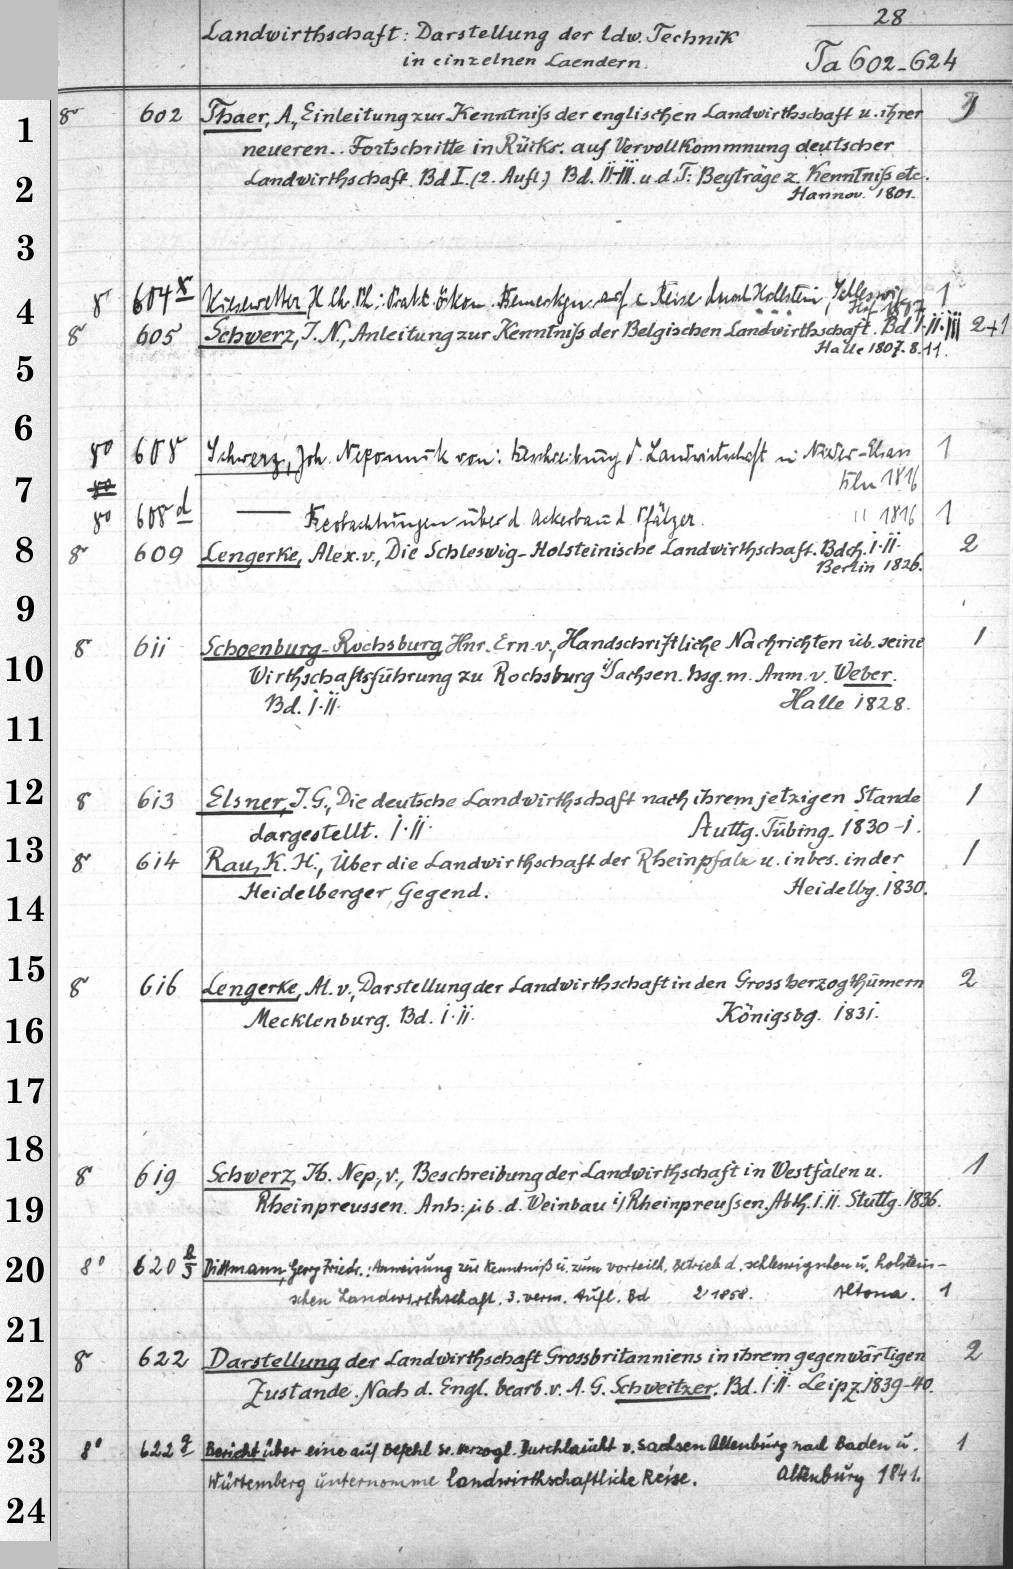 28
Landwirthschaft: Darstellung der ldw. Technik
in einzelnen Laendern.
Ta 602-624
1
8° 602 Thaer, A., Einleitung zur Kenntniß der englischen Landwirthschaft u. ihrer
neueren.. Fortschritte in Rücks. auf Vervollkommnung deutscher
2
Landwirthschaft. Bd I. (2. Aufl.) Bd. II-III. u. d. T: Beyträge z. Kenntniß etc.
Hannov. 1801.
3
4
8° 604x Prakt. ökon. Bemerkgen auf e. Reise durch Holstein, Schleswig 1
8° 605 Schwerz, J. N., Anleitung zur Kenntniß der Belgischen Landwirthschaft. Bd. I.II.III 2+1
Halle 1807.8.11.
5
6
8° 608 Schwerz, Joh. Nepomuk von: Beschreibung d. Landwirtschaft in Nieder-Elsass 1
Bln 1816
7
8° 608d —— Beobachtungen über d. Ackerbau d. Pfälzer. " 1816 1
8
8° 609 Lengerke, Alex. v., Die Schleswig-Holsteinische Landwirthschaft. Bdch. I.II. 2
Berlin 1826.
9
8° 611 Schoenburg-Rochsburg Hnr. Ern. v., Handschriftliche Nachrichten üb. seine 1
10
Wirthschaftsführung zu Rochsburg i/Sachsen. hsg. m. Anm. v. Weber.
Bd. I.II. Halle 1828.
11
12
8° 613 Elsner, J. G., Die deutsche Landwirthschaft nach ihrem jetzigen Stande 1
dargestellt. I.II. Stuttg. Tübing. 1830-1.
13
8° 614 Rau, K. H., Über die Landwirthschaft der Rheinpfalz u. inbes. in der 1
Heidelberger Gegend. Heidelbg. 1830.
14
15
8° 616 Lengerke, Al. v., Darstellung der Landwirthschaft in den Grossherzogthümern 2
Mecklenburg. Bd. I.II. Königsbg. 1831.
16
17
18
8° 619 Schwerz, Jh. Nep. v., Beschreibung der Landwirthschaft in Westfalen u. 1
19
Rheinpreussen. Anh: üb. d. Weinbau i/Rheinpreußen. Abth. I.II. Stuttg. 1836.
20
8° 620 Dittmann, Georg Friedr.: Anweisung zur Kenntniß u. zum vorteilh. Betrieb d. schleswigschen u. holstein-
schen Landwirthschaft. 3. verm. Aufl. Bd 2 1858. Altona. 1
21
8° 622 Darstellung der Landwirthschaft Grossbritanniens in ihrem gegenwärtigen 2
22
Zustande. Nach d. Engl. bearb. v. A. G. Schweitzer. Bd. I.II. Leipz. 1839-40.
23
8° 622a Bericht über eine auf Befehl Sr. Herzogl. Durchlaucht v. Sachsen Altenburg nach Baden u. 1
Würtemberg unternomme landwirthschaftliche Reise. Altenburg 1841.
24